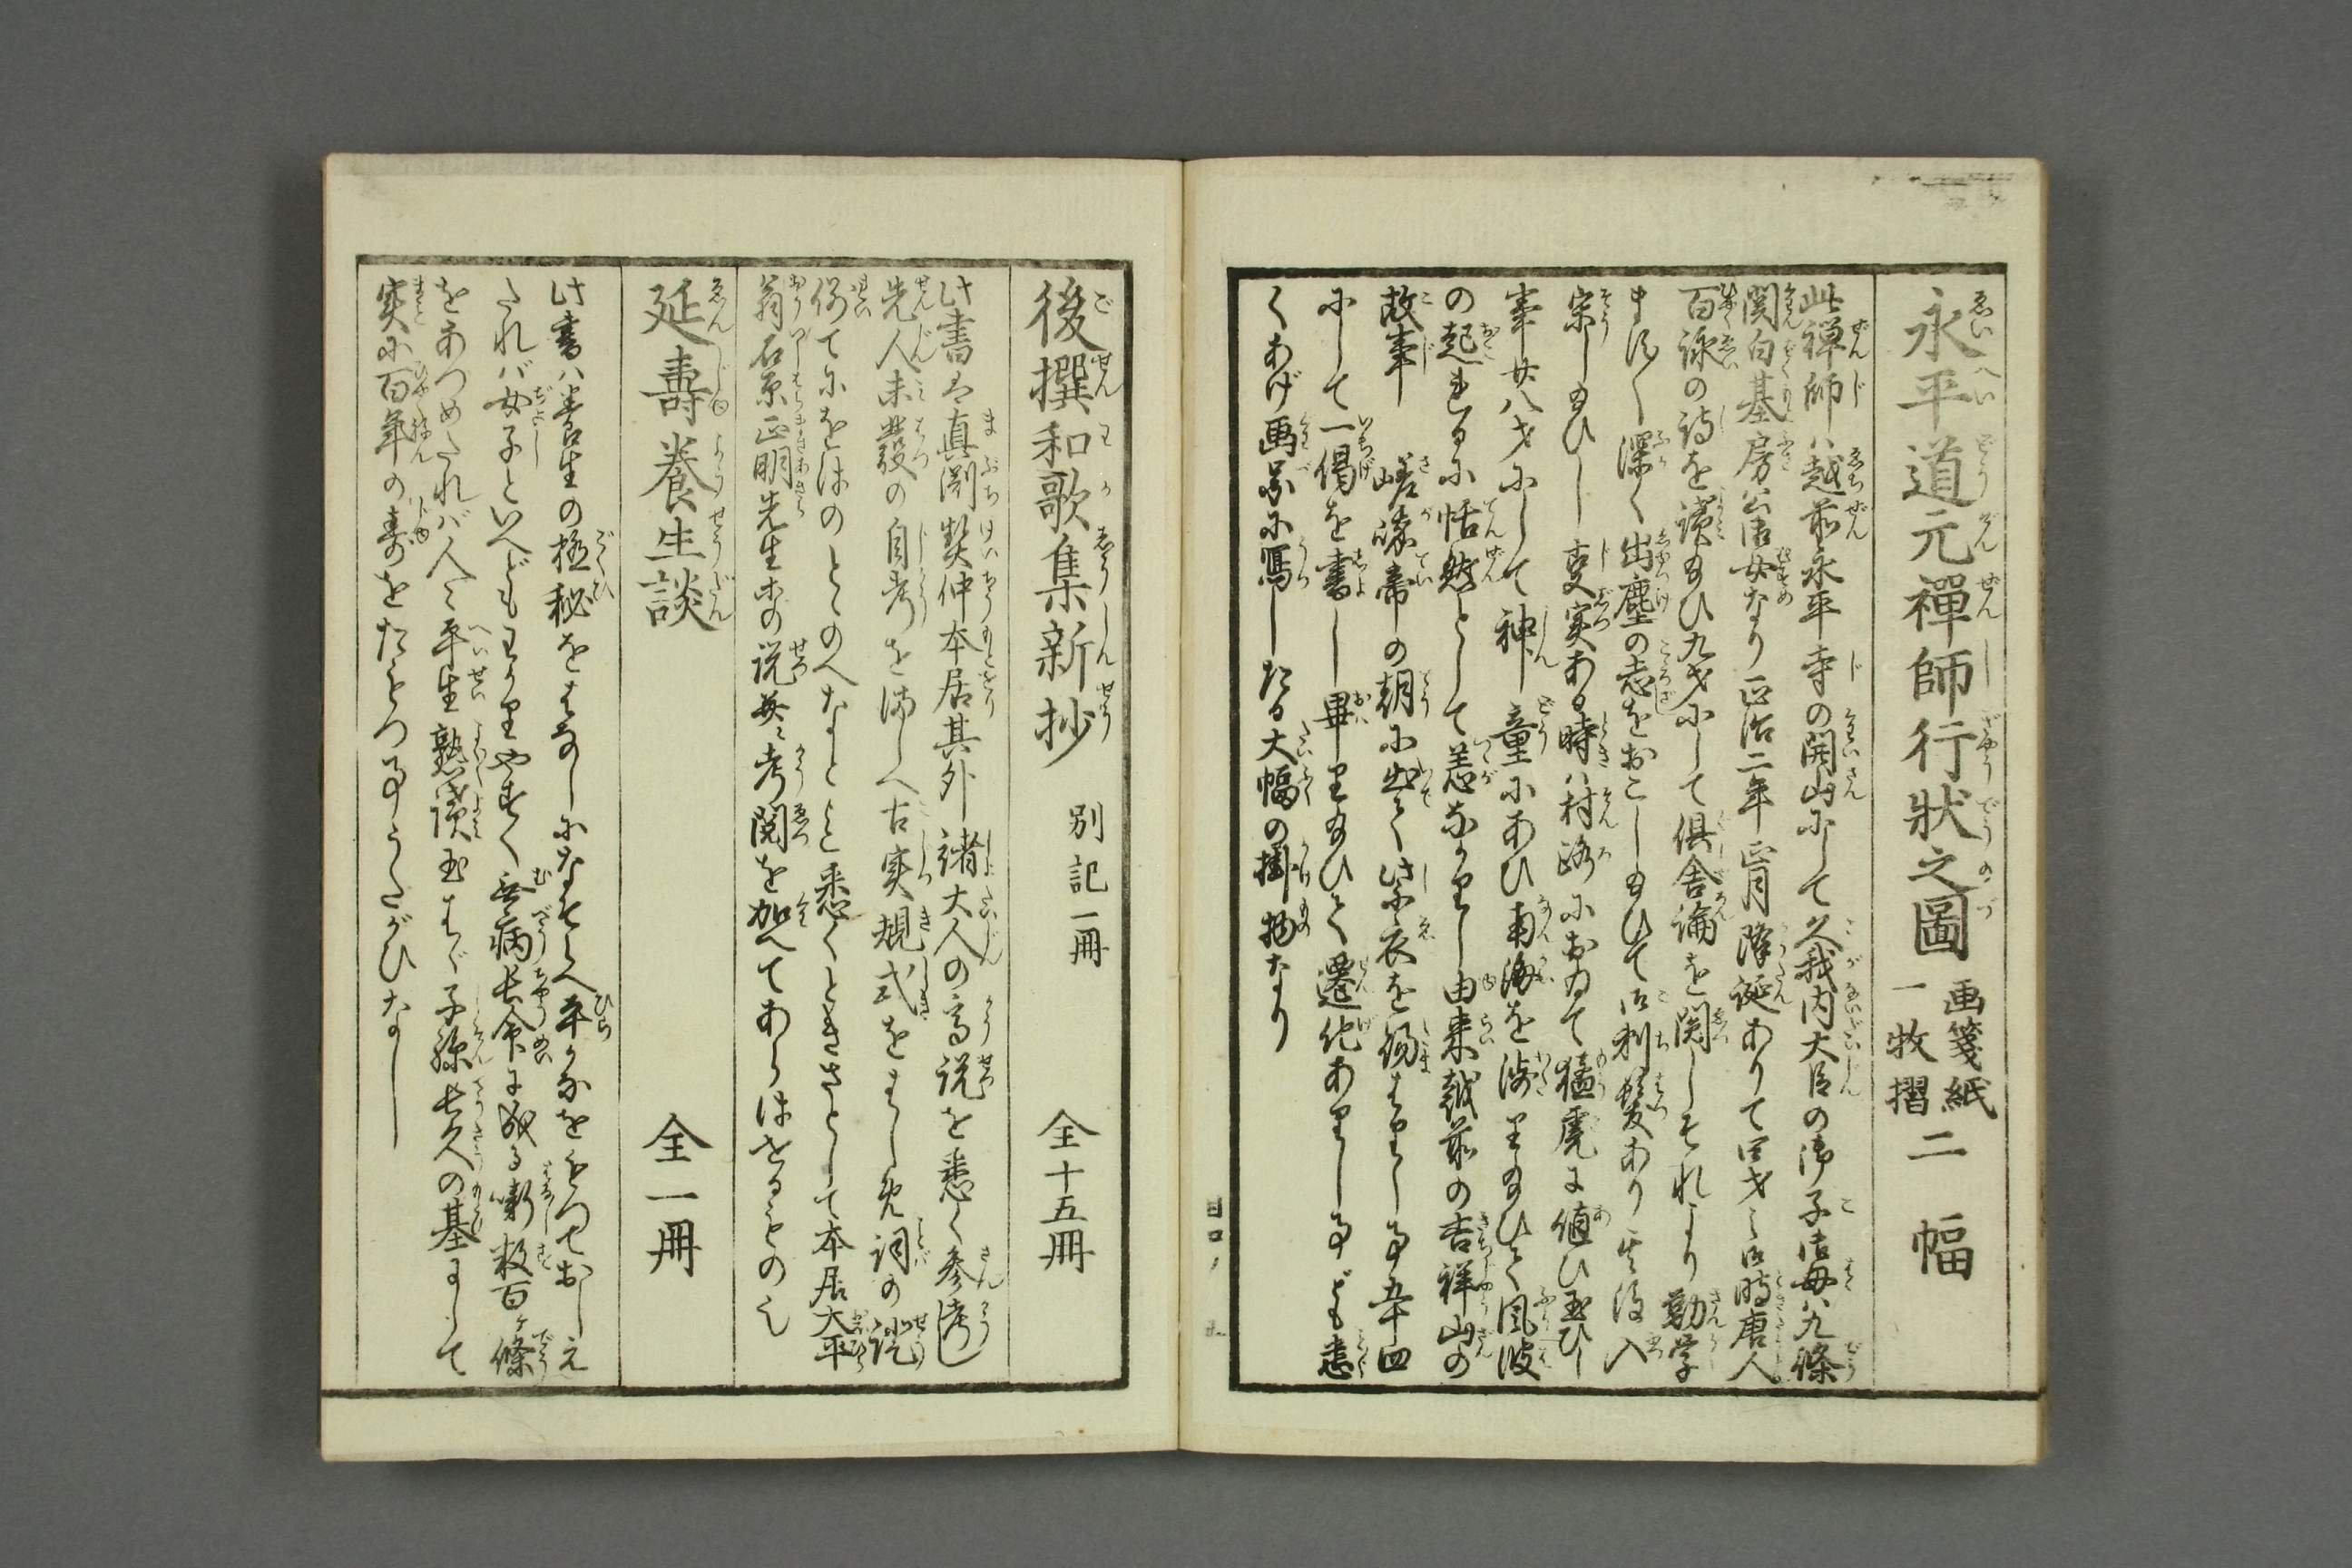 永平道元禪師行狀之圖 画箋紙一枚摺 二幅
此禅師ハ越前永平寺の開山にして久我内大臣の御子御母ハ九條
関白基房公御女なり正治二年正月降誕ありて四才の御時唐人
百詠の詩を讀給ひ九才にして倶舎論を閲しそれより勤学
ましまし深く出塵の志をおこし給ひて御剃髪あり其後入
宋し給ひし事実ある時ハ村路におゐて猛虎に値ひ玉ひし
事廿八才にして神童にあひ南海を渉り給ひて風波
の起れるに恬然として恙なかりし由来越前の吉祥山の
故事 嵯峨帝の朝に出て紫衣を賜はりし事五十四
にして一偈を書し畢り給ひて遷化ありし事ども悉
くあげ画圖に寫したる大幅の掛物なり
後撰和歌集新抄 別記一冊 全十五冊
此書は真淵契仲本居其外諸大人の高説を悉く参考し
先人未發の自考をまじへ古実規式をもしめ詞の説
例てにをはのとゝのへなとこと悉くときさとして本居大平
翁石原正明先生等の説并ニ考閲を加へてあらはせるもの也
延壽養生談 全一冊
此書ハ養生の極秘をはなしになぞらへ平かなをもつておしえ
たれバ女子といへどもわかりやすく無病長命に成る噺数百ヶ條
をあつめたれバ人々平生熟讀玉はゞ子孫長久の基にして
実に百年の壽をたもつ事うたがひなし